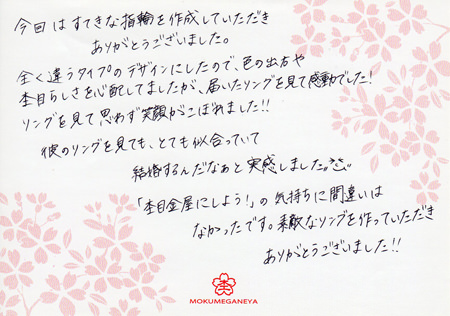 今回はすてきな指輪を作成していただき
ありがとうございました。
全く違うタイプのデザインにしたので、色の出方や
杢目らしさを心配してましたが、届いたリングを見て感動でした!
リングを見て思わず笑顔がこぼれました!!
彼のリングを見ても、とても似合っていて
結婚するんだなぁと実感しました。
「杢目金屋にしよう!」の気持ちに間違いは
なかったです。素敵なリングを作っていただき
ありがとうございました!!
杢
MOKUMEGANEYA